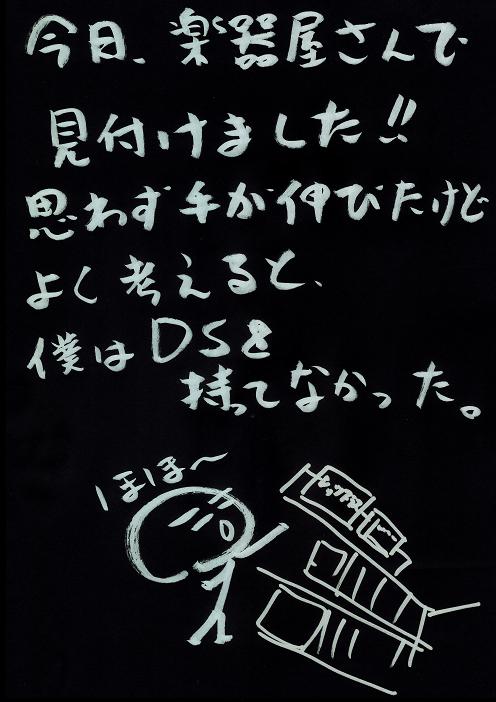 今日、楽器屋さんで
見付けました!!
思わず手が伸びたけど
よく考えると、
僕はDSを
持ってなかった。
ほほ〜